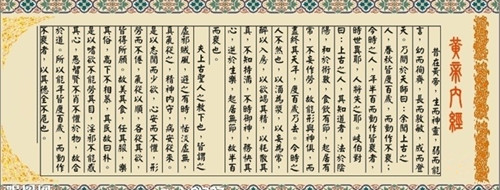 黄帝内經
昔在黃帝，生而神靈，弱而能
言，幼而徇齊，長而敦敏，成而登
天。乃問於天師曰：余聞上古之
人，春秋皆度百歲，而動作不衰；
今時之人，年半百而動作皆衰者，
時世異耶，人將失之耶？岐伯對
曰：上古之人，其知道者，法於陰
陽，和於術數，食飲有節，起居有
常，不妄作勞，故能形與神俱，而
盡終其天年，度百歲乃去。今時之
人不然也，以酒爲漿，以妄爲常，
醉以入房，以欲竭其精，以耗散其
真，不知持滿，不時御神，務快其
心，逆於生樂，起居無節，故半百
而衰也。
夫上古聖人之教下也，皆謂之
虛邪賊風，避之有時，恬淡虛無，
真氣從之，精神内守，病安從來。
是以志閑而少欲，心安而不懼，形
勞而不倦，氣從以順，各從其欲，
皆得所願。故美其食，任其服，樂
其俗，高下不相慕，其民故曰朴。
是以嗜欲不能勞其目，淫邪不能惑
其心，愚智賢不肖不懼於物，故合
於道。所以能年皆度百歲，而動作
不衰者，以其德全不危也。